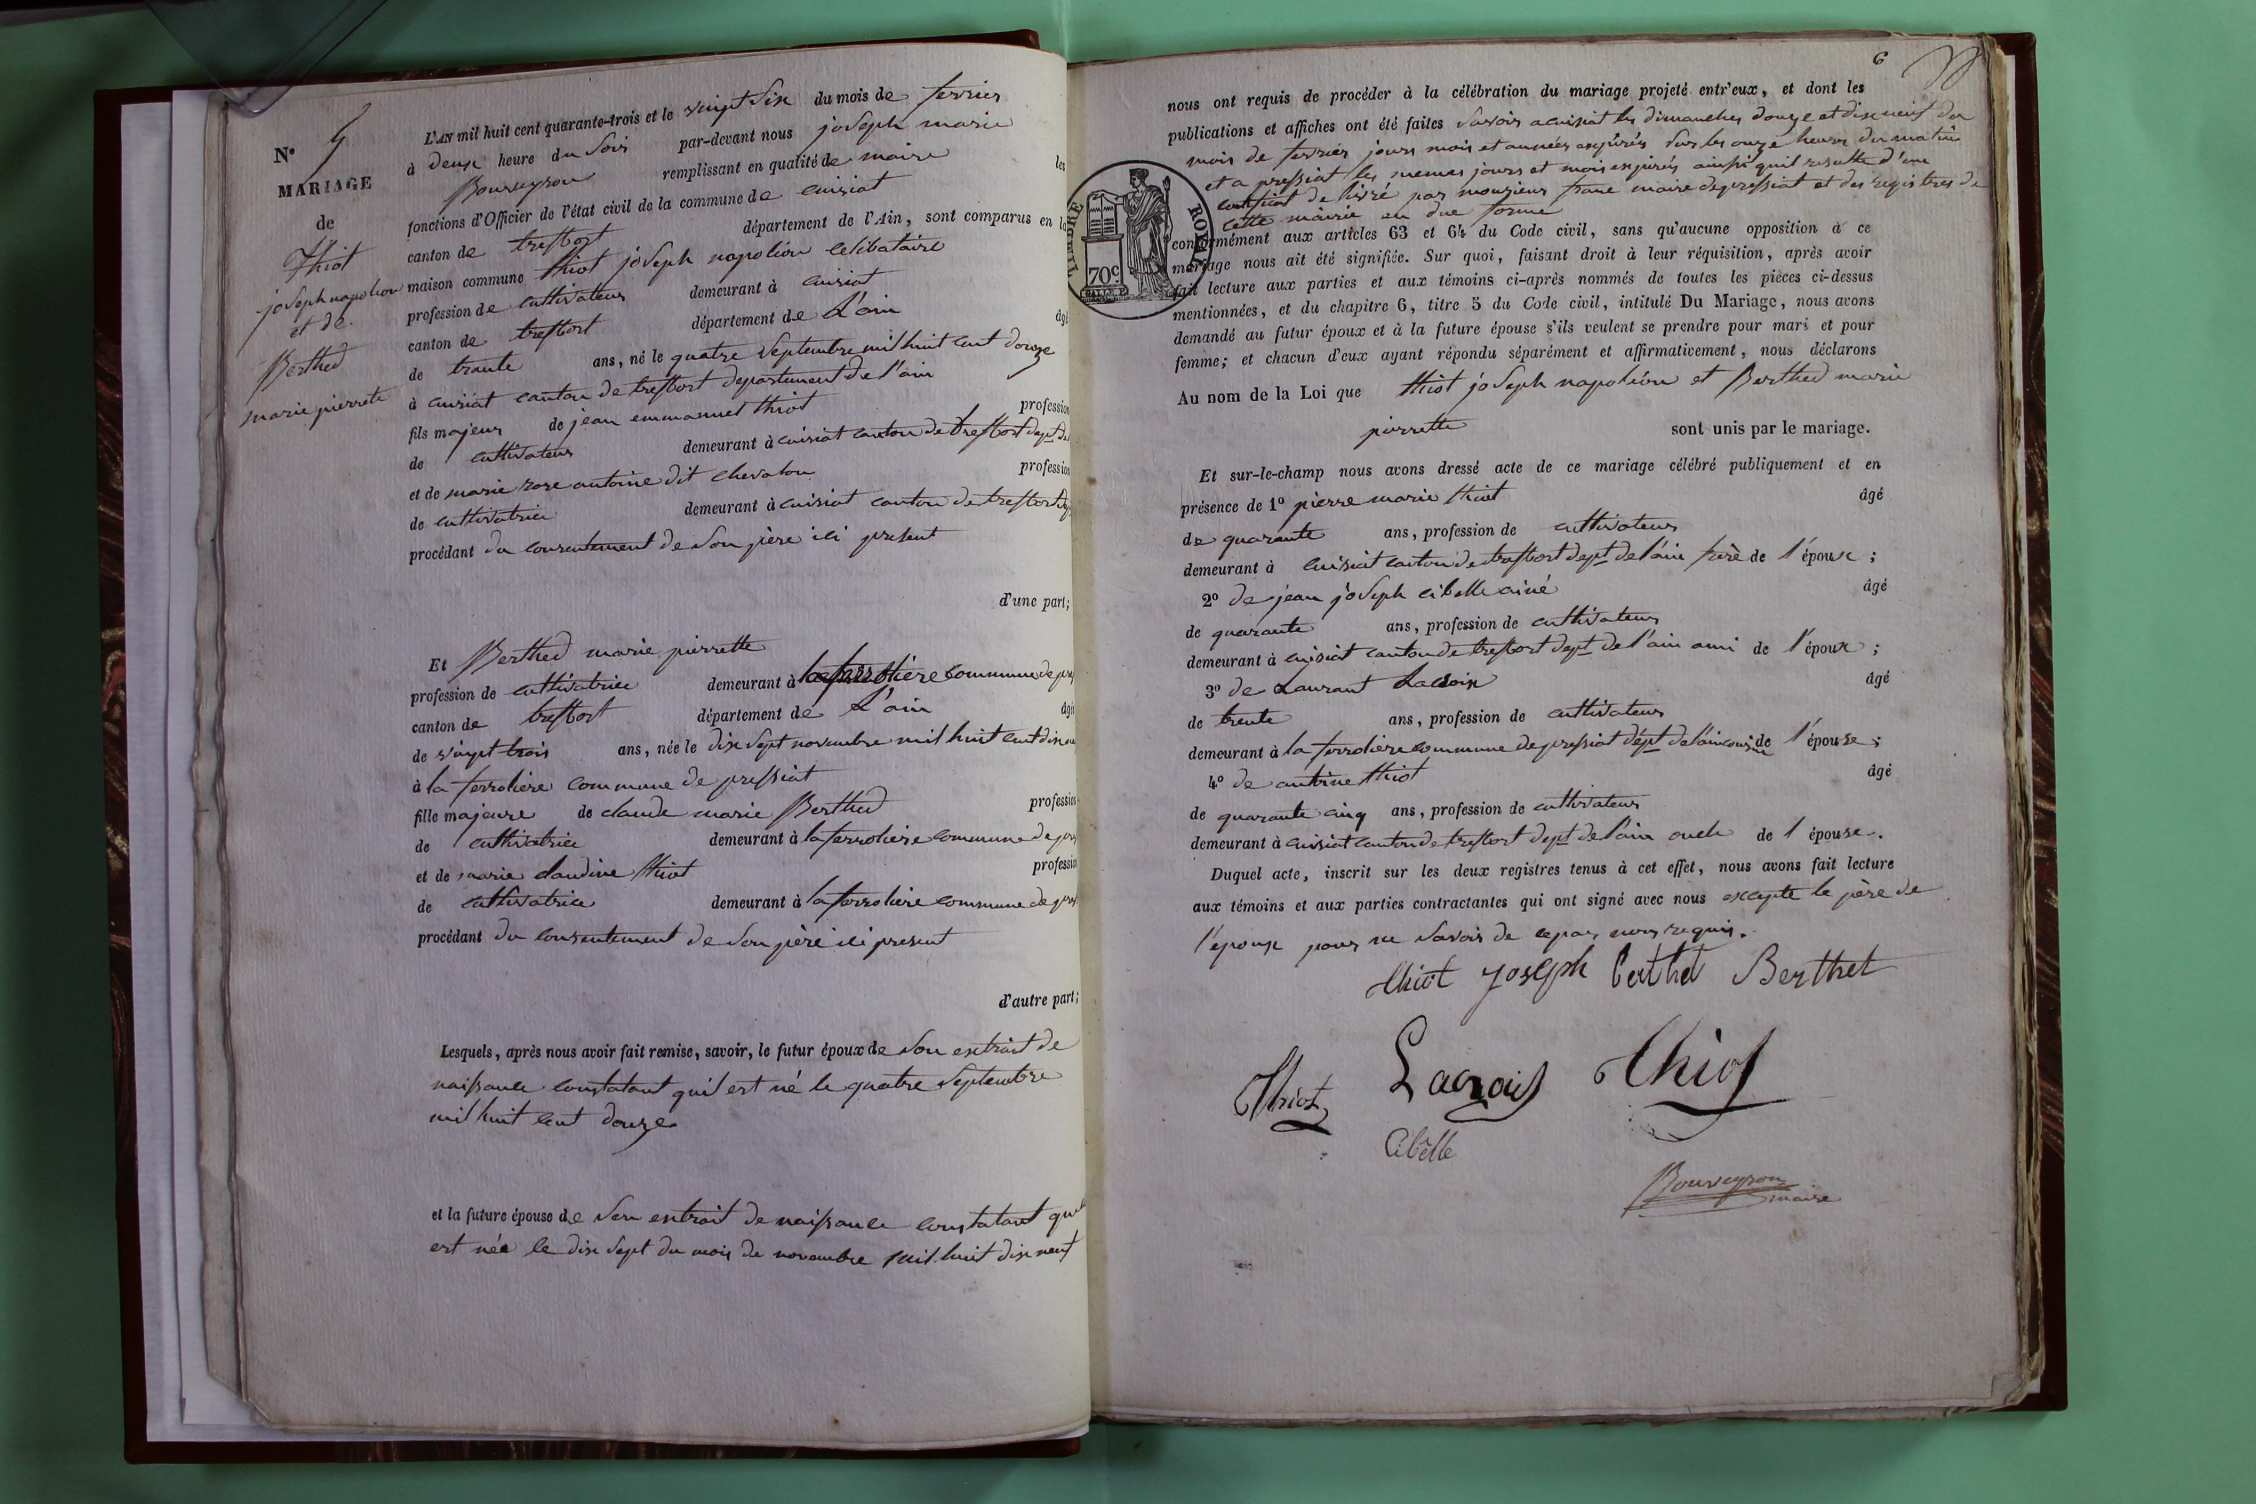 N° 5
MARIAGE
de
Thiot
joseph napolion
et de
Berthed
marie pierrette
L'AN mil huit cent quarante-trois et le vingt six du mois de fevrier
à deux heure du soir par-devant nous joseph marie
Bouveyron remplissant en qualité de maire les
fonctions d'Officier de l'état civil de la commune de cuisiat
canton de treffort département de l'Ain, sont comparus en la
maison commune thiot joseph napoléon celibataire
profession de cultivateur demeurant à cuisiat
canton de treffort département de L'ain âgé
de trante ans, né le quatre septembre mil huit cent douze
à cuisiat canton de treffort departement de l'ain
fils majeur de jean emmanuel thiot profession
de cultivateur demeurant à cuisiat canton de treffort dept de
et de marie rose antoine dit chevalon profession
de cultivatrice demeurant à cuisiat canton de treffort
procédant du consentement de son père ici present
d'une part;
Et Berthed marie pierrette
profession de cultivatrice demeurant à commune de
canton de treffort département de L'ain âgé
de vingt trois ans, née le dix sept novembre mil huit cent dix
à la ferroliere commune de pressiat
fille majeure de claude marie Berthed profession
de cultivatrice demeurant à la ferroliere commune de
et de marie claudine thiot profession
de cultivatrice demeurant à la ferroliere commune de
procédant du consentement de son père ici present
d'autre part;
Lesquels, après nous avoir fait remise, savoir, le futur époux de son extrait de
naissance constatant qu'il est né le quatre septembre
mil huit cent douze
et la future épouse de son extrait de naissance constatant
est née le dix sept du mois de novembre mil huit dix neuf
6
nous ont requis de procéder à la célébration du mariage projeté entr'eux, et dont les
publications et affiches ont été faites savoir a cuisiat les dimanches douze et dix neuf du
mois de fevrier jours mois et années expirés sur les onze heures du matin
et a pressiat les memes jours et mois expirés ainssi quil resulte d'un
certificat de livré par monsieur franc maire de pressiat et des registres de
cette mairie en due forme
TIMBRE ROYAL
70c
conformément aux articles 63 et 64 du Code civil, sans qu'aucune opposition à ce
mariage nous ait été signifiée. Sur quoi, faisant droit à leur réquisition, après avoir
fait lecture aux parties et aux témoins ci-après nommés de toutes les pièces ci-dessus
mentionnées, et du chapitre 6, titre 5 du Code civil, intitulé Du Mariage, nous avons
demandé au futur époux et à la future épouse s'ils veulent se prendre pour mari et pour
femme; et chacun d'eux ayant répondu séparément et affirmativement, nous déclarons
Au nom de la Loi que thiot joseph napoléon et Berthed marie
pierrette sont unis par le mariage.
Et sur-le-champ nous avons dressé acte de ce mariage célébré publiquement et en
présence de 1° pierre marie thiot âgé
de quarante ans, profession de cultivateur
demeurant à cuisiat canton de treffort dept de l'ain frère de l'époux;
2° de jean joseph cibelle ainé âgé
de quarante ans, profession de cultivateur
demeurant à cuisiat canton de treffort dept de l'ain ami de l'époux;
3° de Laurant Lacroix âgé
de trente ans, profession de cultivateur
demeurant à la ferroliere commune de pressiat dépt de l'ain cousin de l'épouse;
4° de antoine thiot âgé
de quarante cinq ans, profession de cultivateur
demeurant à cuisiat canton de treffort dept de l'ain oncle de l'épouse.
Duquel acte, inscrit sur les deux registres tenus à cet effet, nous avons fait lecture
aux témoins et aux parties contractantes qui ont signé avec nous excepte le père de
l'époux pour ne savoir de requis.
thiot Joseph Berthet Berthet
Thiot Lacroix Thiot
Cibelle
Bouveyron
maire